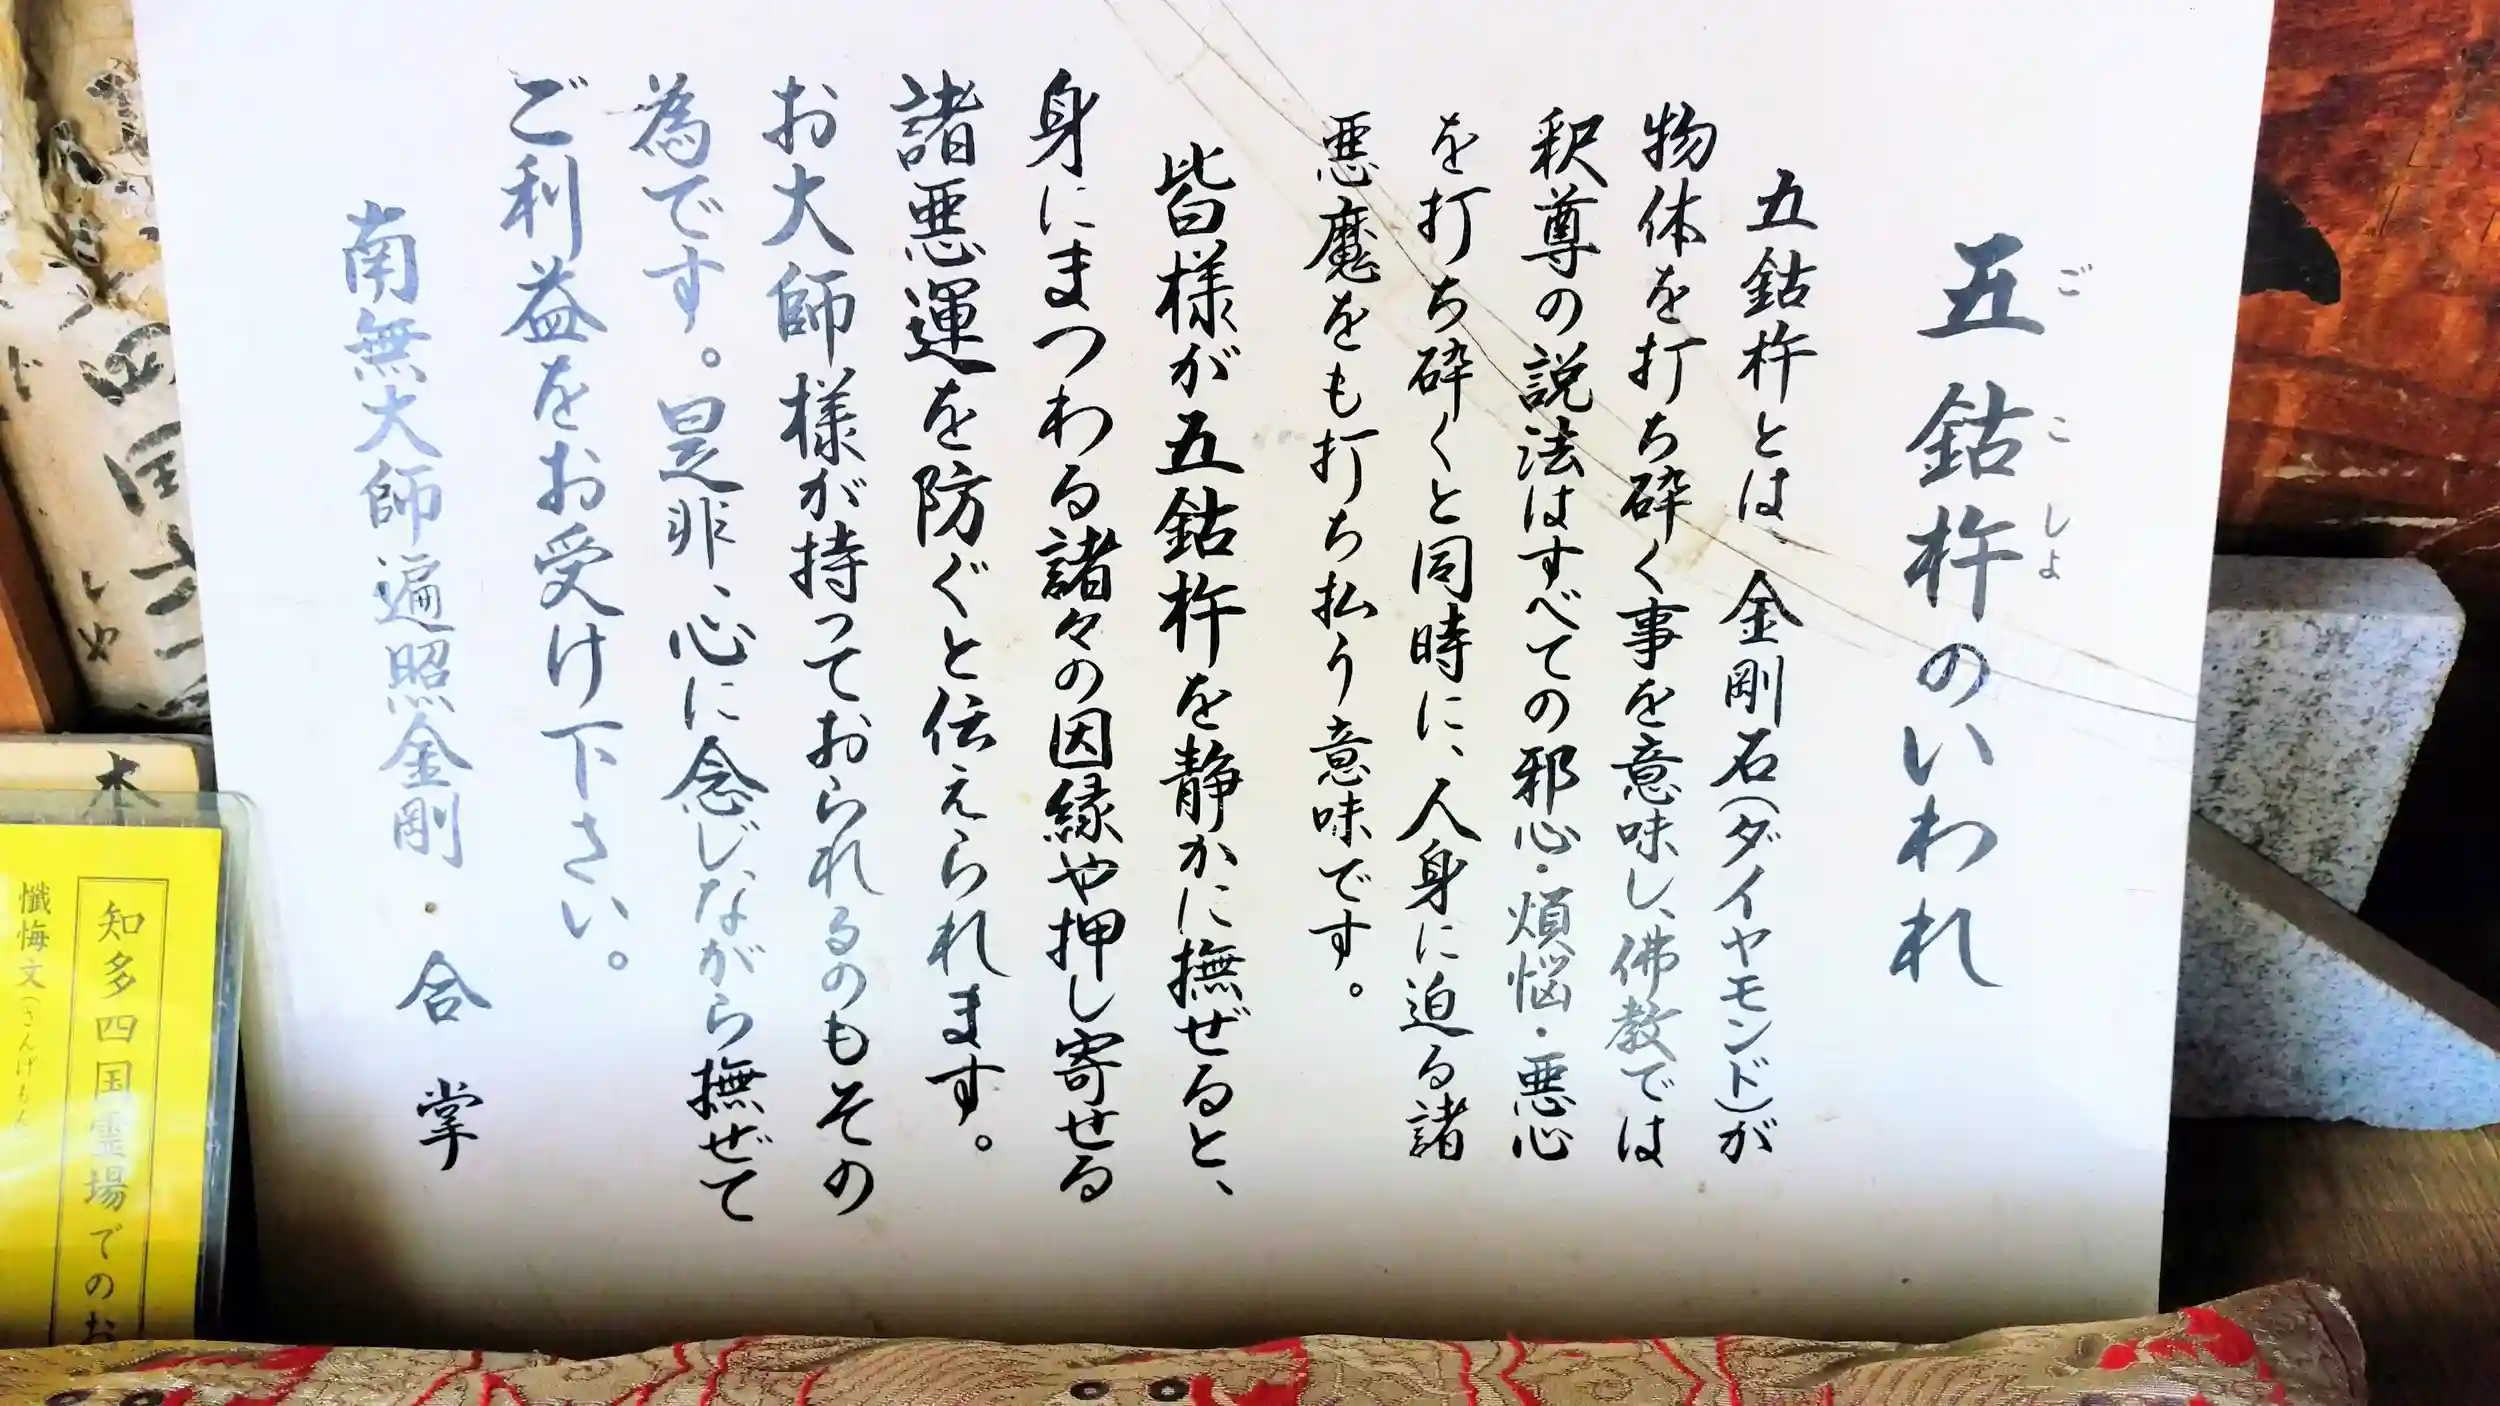 五鈷杵のいわれ
ごこしょ
五鈷杵とは、金剛石(ダイヤモンド)が
物体を打ち砕く事を意味し、佛教では
釈尊の説法はすべての邪心・煩悩・悪心
を打ち砕くと同時に、人身に迫る諸
悪魔をも打ち払う意味です。
皆様が五鈷杵を静かに撫ぜると、
身にまつわる諸々の因縁や押し寄せる
諸悪運を防ぐと伝えられます。
お大師様が持っておられるのもその
為です。是非、心に念じながら撫ぜて
ご利益をお受け下さい。
南無大師遍照金剛・合掌
本
知多四国霊場でのお
懺悔文(さんげもん